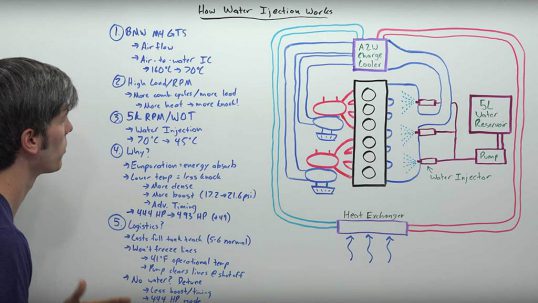 How Water Injection Works
① BMW M4 GTS
→ Airflow
→ Air-to-water IC
→ 160°C → 70°C
② High Load/RPM
→ More comb cycles/more load
→ More heat → more knock!
③ 5k RPM/WOT
→ Water Injection
→ 70°C → 45°C
④ Why?
→ Evaporation = energy absorb
→ Lower temp = less knock
→ More dense
→ More boost (17.2→21.6psi)
→ Adv. Timing
→ 444 HP → 493 HP (+49)
⑤ Logistics?
→ Lasts full tank track (5-6 normal)
→ Won't freeze lines
→ 41°F operational temp
→ Pump clears lines @ shutoff
→ No water? Detune
→ Less boost/timing
→ 444 HP mode
A2W
Charge
Cooler
5L
Water
Reservoir
Pump
Water Injector
Heat Exchanger